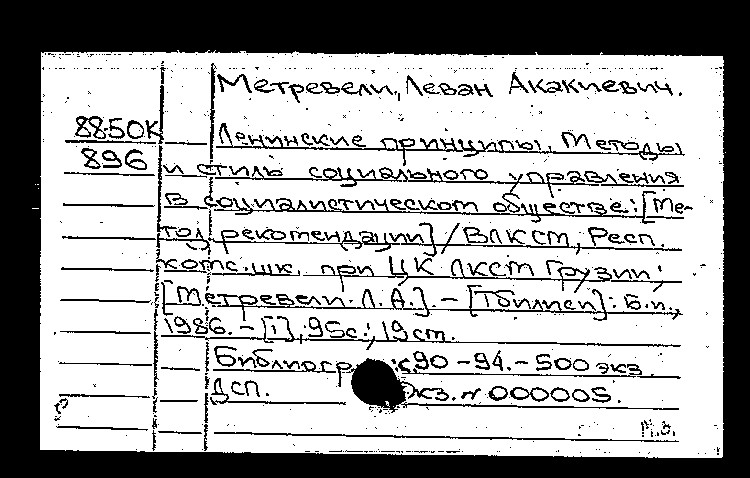 Метревели, Леван Акакиевич.
88-50К
896
Ленинские принципы, методы
и стиль социального управления
в социалистическом обществе: [Ме-
тод. рекомендации] / ВЛКСМ, Респ.
комс. шк. при ЦК ЛКСМ Грузии;
[Метревели Л. А.]. - [Тбилиси]: Б.и.,
1986. - [1], 95с.; 19 см.
Библиогр.: с.90-94. - 500 экз.
ДСП. Экз. № 000005.